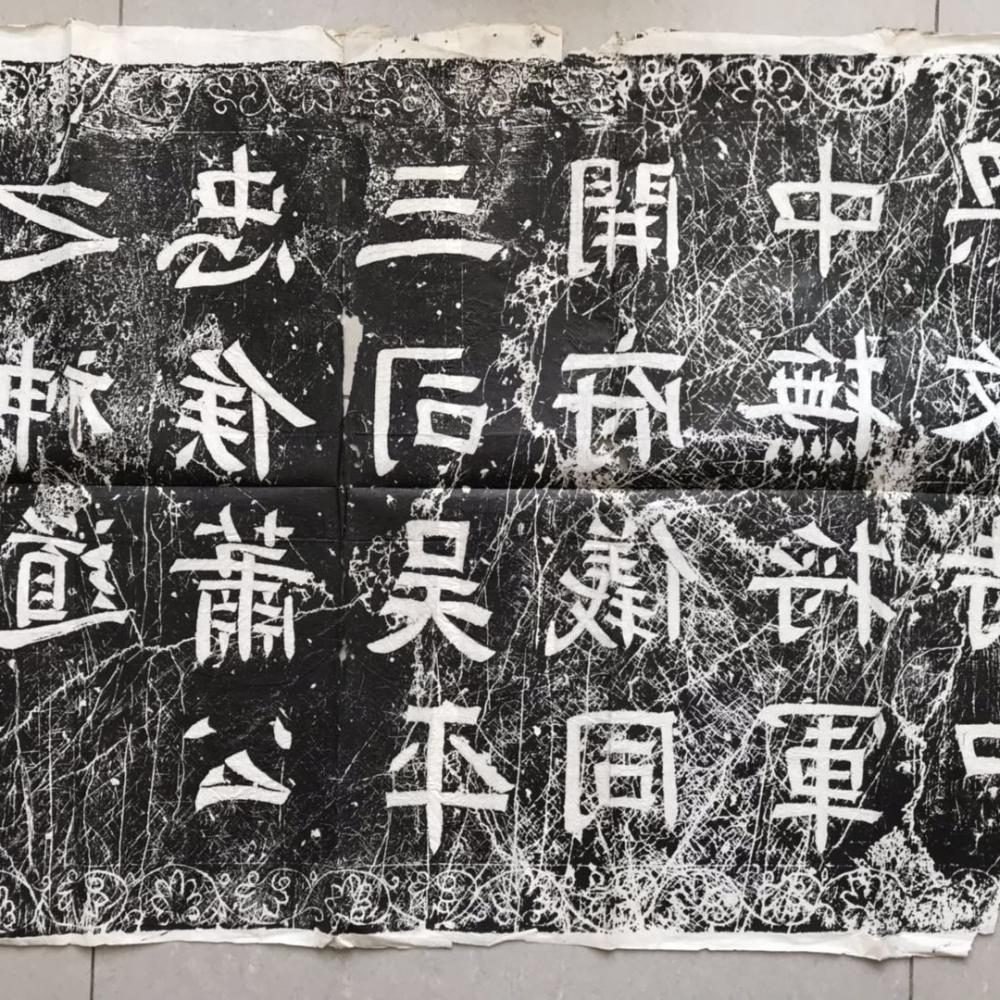 中撫將軍
開府儀同
三司吳平
忠侯蕭公
之神道